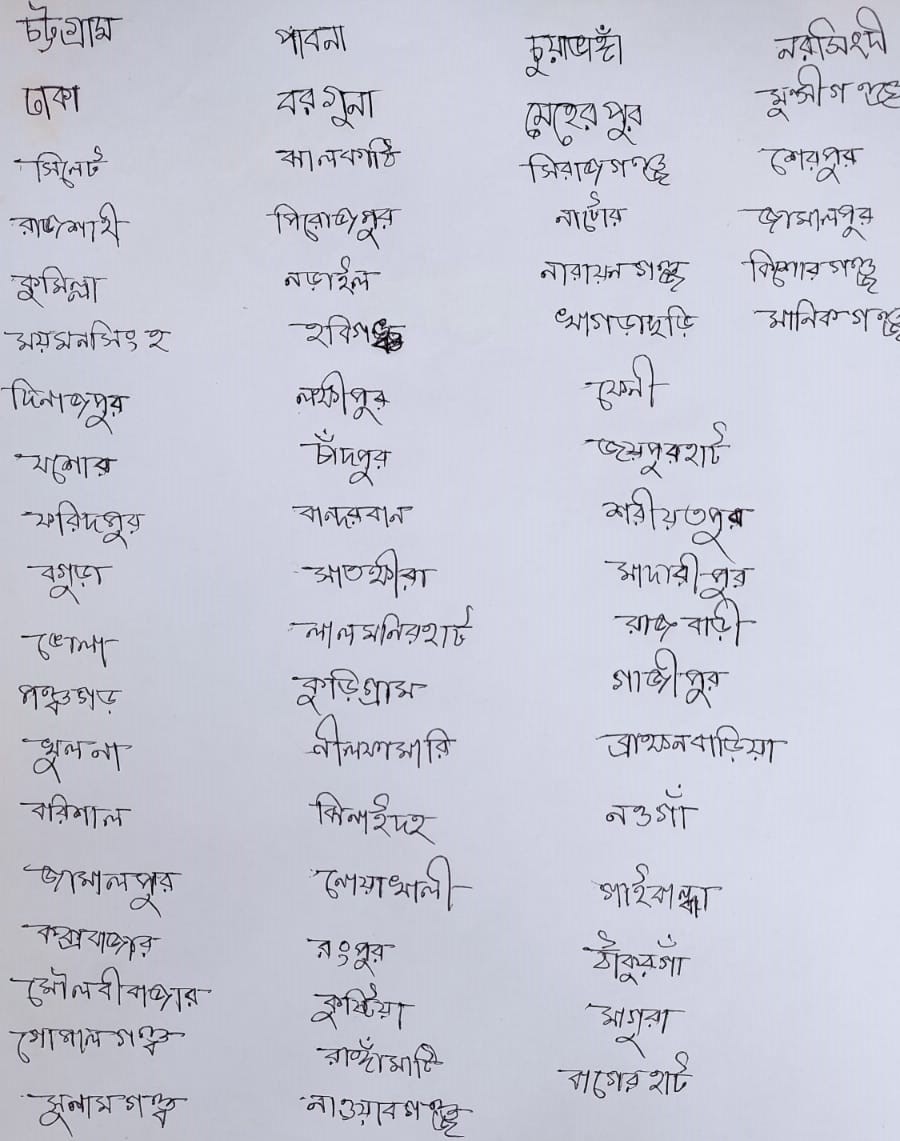 চট্টগ্রাম
ঢাকা
সিলেট
রাজশাহী
কুমিল্লা
ময়মনসিংহ
দিনাজপুর
যশোর
ফরিদপুর
বগুড়া
ভোলা
পঞ্চগড়
খুলনা
বরিশাল
জামালপুর
কক্সবাজার
মৌলবীবাজার
গোপালগঞ্জ
সুনামগঞ্জ
পাবনা
বরগুনা
ঝালকাঠি
পিরোজপুর
নড়াইল
হবিগঞ্জ
লক্ষীপুর
চাঁদপুর
বান্দরবান
সাতক্ষীরা
লালমনিরহাট
কুড়িগ্রাম
নীলফামারি
ঝিনাইদহ
নোয়াখালী
রংপুর
কুষ্টিয়া
রাঙ্গাঁমাটি
নাওয়াবগঞ্জ
চুয়াডাঙ্গাঁ
মেহেরপুর
সিরাজগঞ্জ
নাটোর
নারায়নগঞ্জ
খাগড়াছড়ি
ফেনী
জয়পুরহাট
শরীয়তপুর
মাদারীপুর
রাজবাড়ী
গাজীপুর
ব্রাহ্মনবাড়িয়া
নওগাঁ
গাইবান্ধা
ঠাকুরগাঁ
মাগুরা
বাগেরহাট
নরসিংদী
মুন্সীগঞ্জ
শেরপুর
জামালপুর
কিশোরগঞ্জ
মানিকগঞ্জ